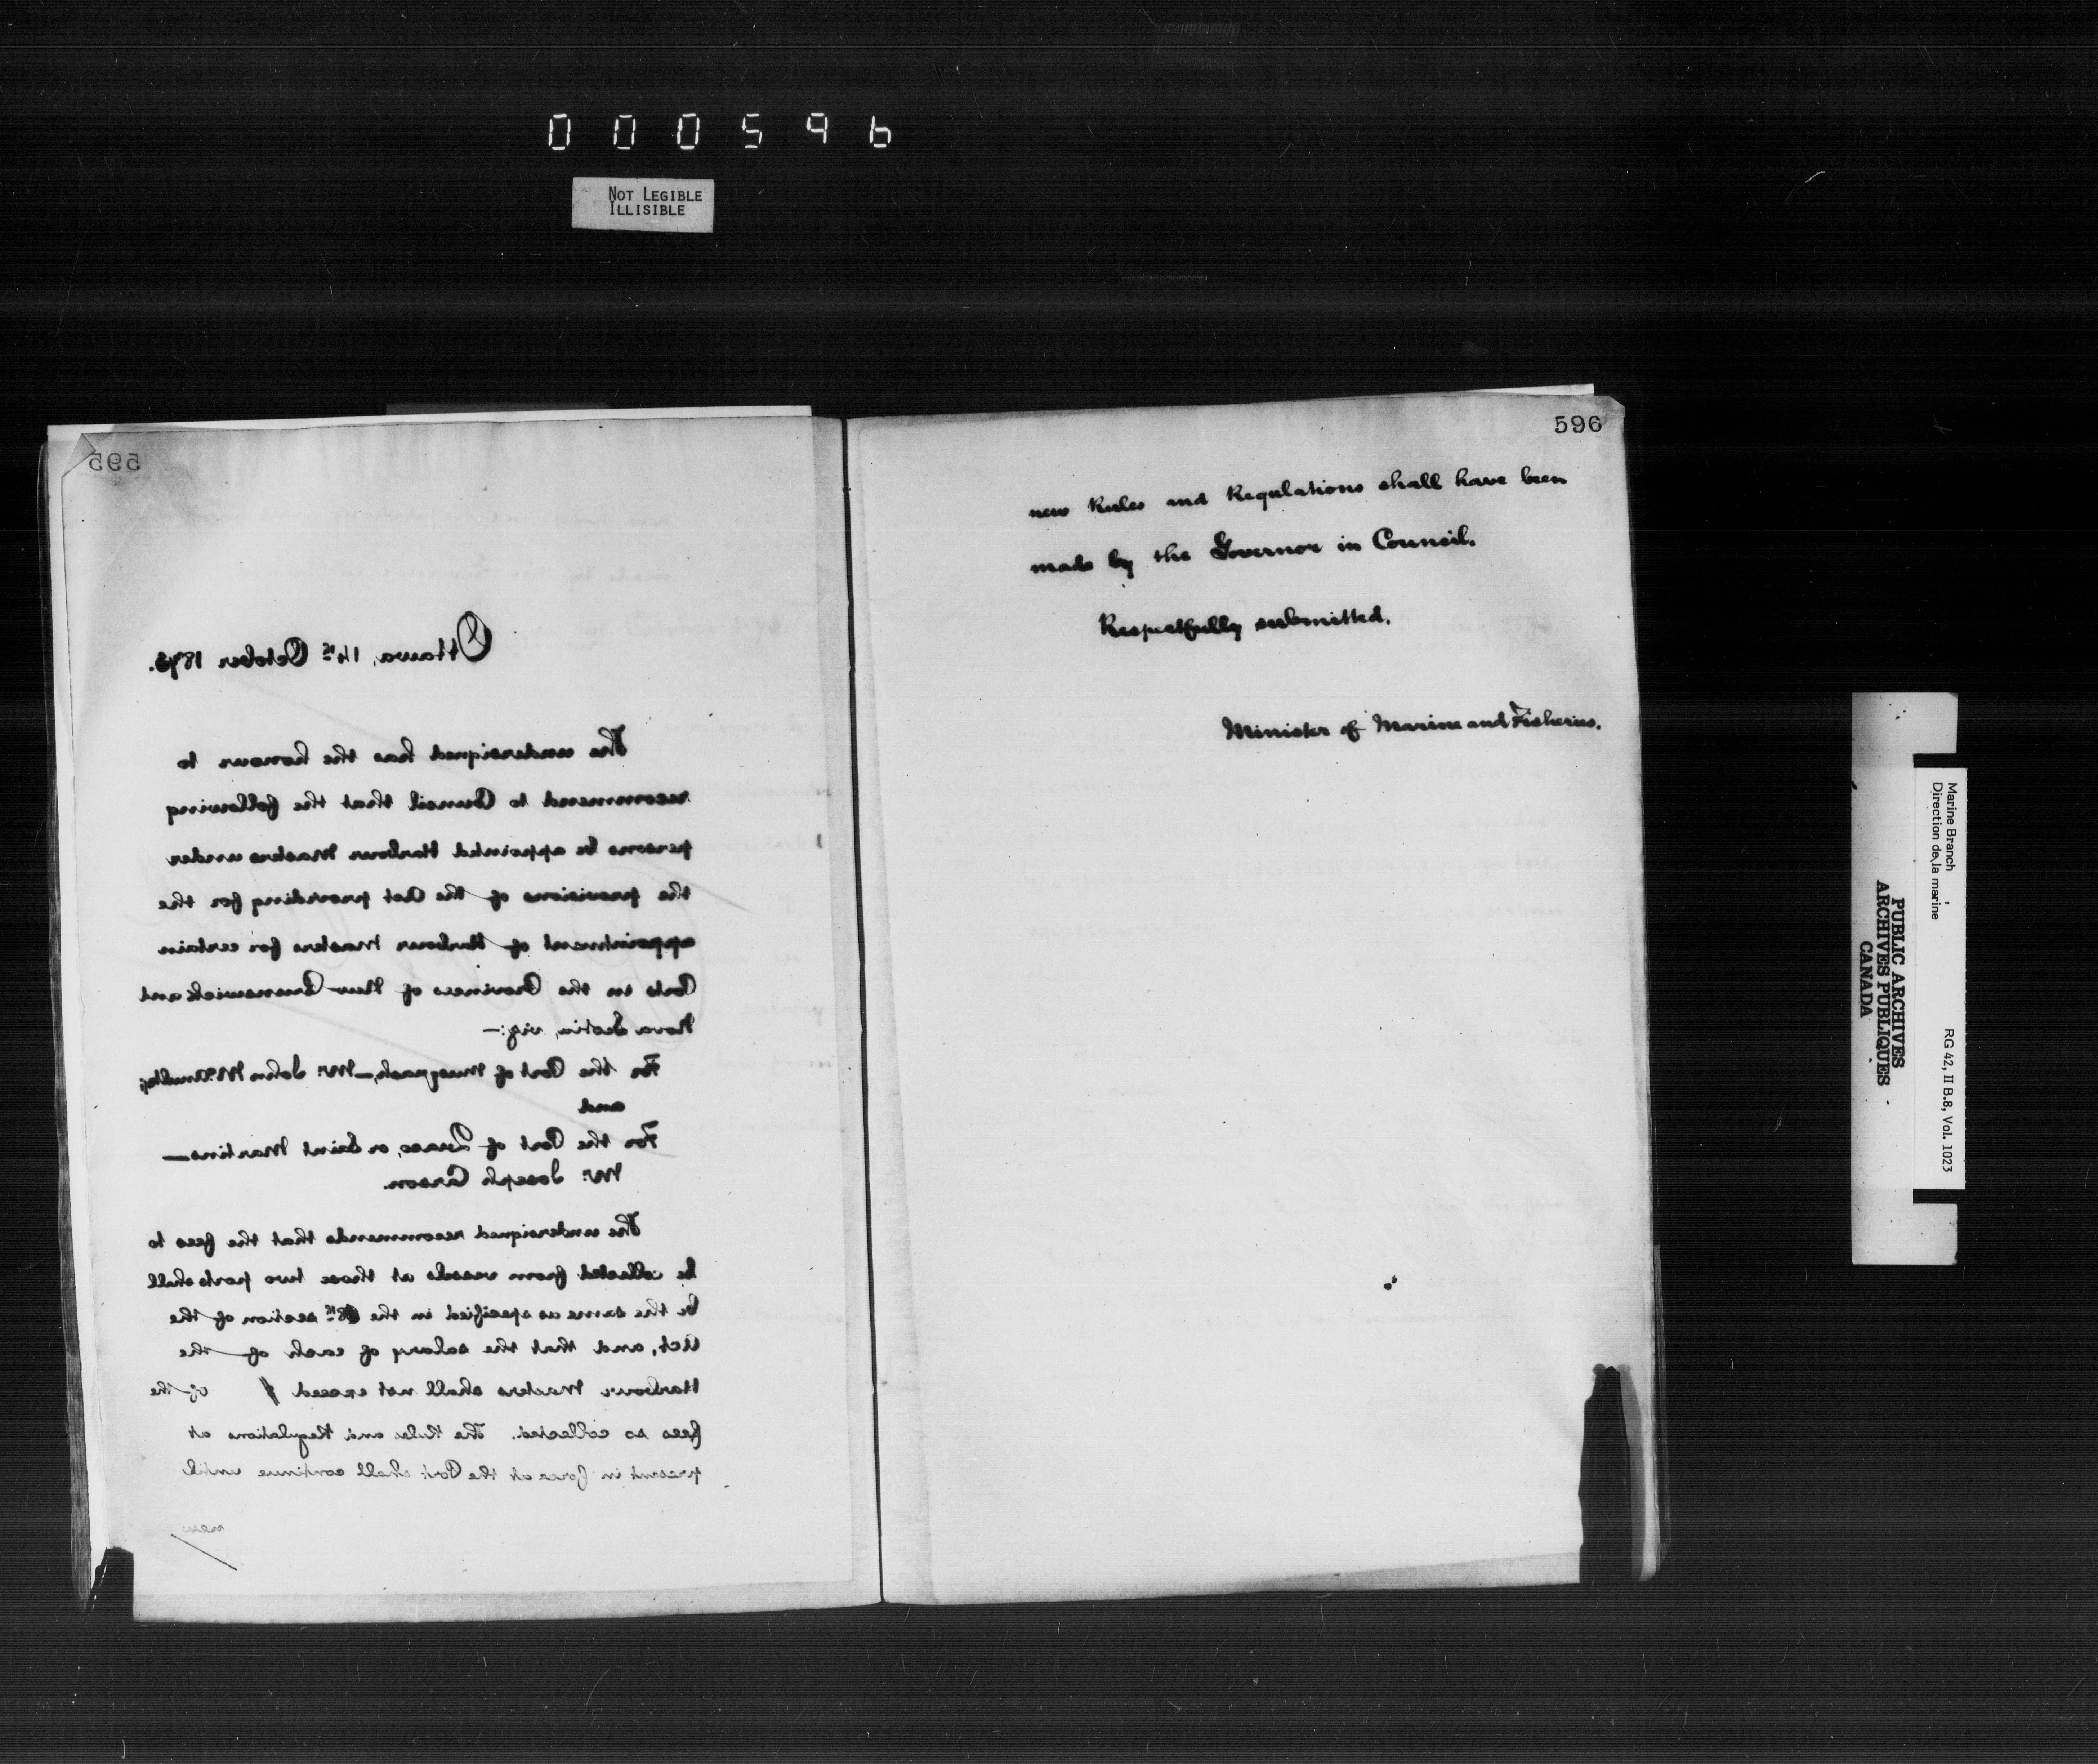 000596
NOT LEGIBLE
ILLISIBLE
595
Ottawa, 14th October 1873.
The undersigned has the honour to
recommend to Council that the following
persons be appointed Harbour Masters under
the provisions of the Act providing for the
appointment of Harbour Masters for certain
Ports in the Provinces of New Brunswick and
Nova Scotia, viz:—
For the Port of Musquash,— Mr. John
and
For the Port of Quaco, or Saint Martins—
Mr. Joseph Carson.
The undersigned recommends that the fees to
be collected from vessels at those two ports shall
be the same as specified in the 18th section of the
Act, and that the salary of each of the
Harbour Masters shall not exceed $ of the
fees so collected. The Rules and Regulations at
present in force at the Port shall continue until
new
596
new Rules and Regulations shall have been
made by the Governor in Council.
Respectfully submitted.
Minister of Marine and Fisheries.
Marine Branch
Direction de la marine
RG 42, II B.8, Vol. 1023
PUBLIC ARCHIVES
ARCHIVES PUBLIQUES
CANADA